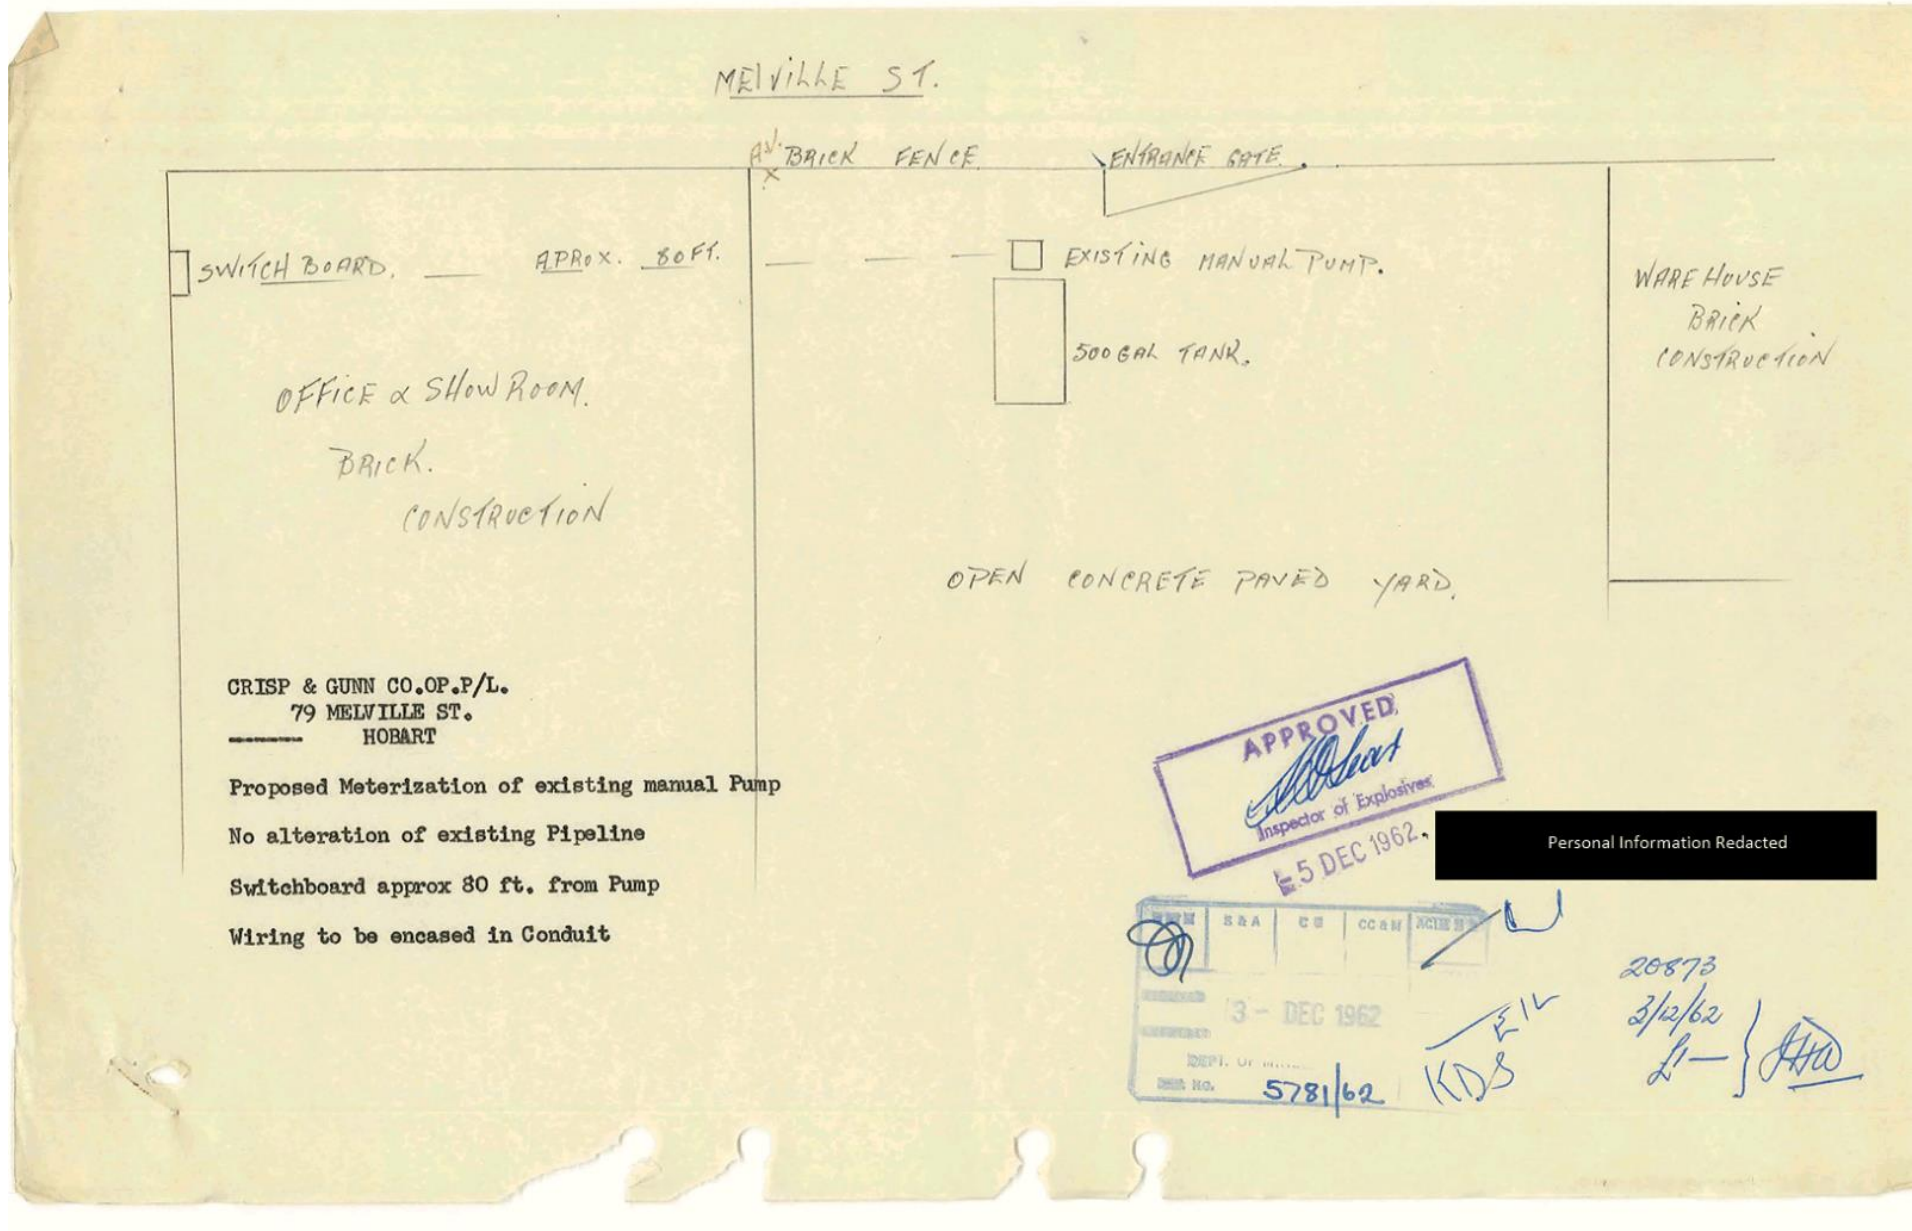 MELVILLE ST.
A.V. BRICK FENCE ENTRANCE GATE.
X
SWITCH BOARD. APROX. 80FT. EXISTING MANUAL PUMP.
500 GAL TANK.
WAREHOUSE
BRICK
CONSTRUCTION
OFFICE & SHOW ROOM.
BRICK.
CONSTRUCTION
OPEN CONCRETE PAVED YARD.
CRISP & GUNN CO.OP.P/L.
79 MELVILLE ST.
HOBART
Proposed Meterization of existing manual Pump
No alteration of existing Pipeline
Switchboard approx 80 ft. from Pump
Wiring to be encased in Conduit
APPROVED
Inspector of Explosives
5 DEC 1962.
Personal Information Redacted
S & A CC & M
3 - DEC 1962
DEPT. OF
No. 5781/62
KDS
20873
3/12/62
£1—